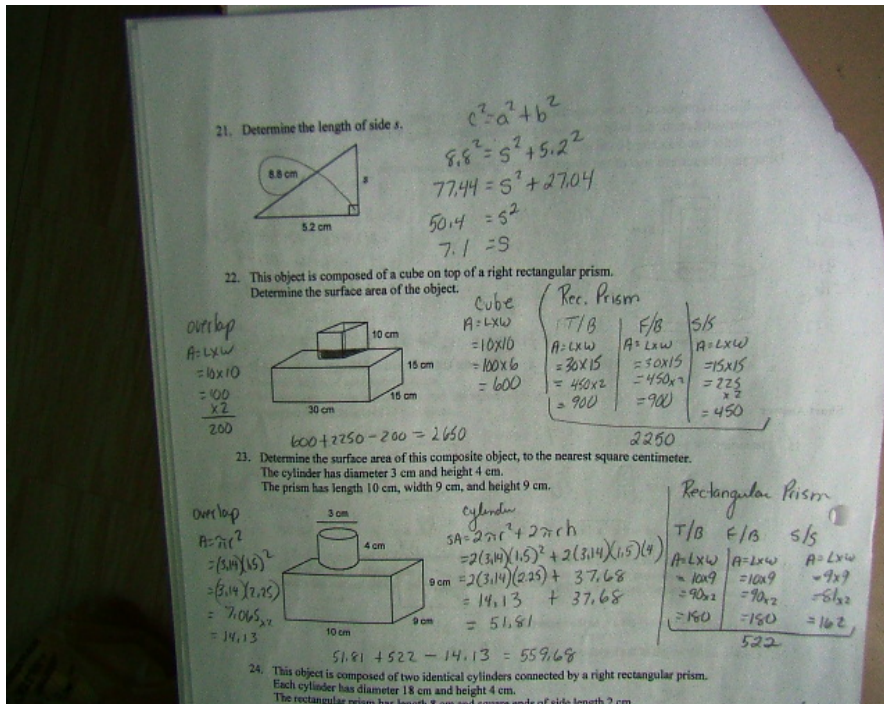 21. Determine the length of side s.
c²=a²+b²
8.8²=s²+5.2²
77.44=s²+27.04
50.4 =s²
7.1 =s
8.8 cm
s
5.2 cm
22. This object is composed of a cube on top of a right rectangular prism.
Determine the surface area of the object.
overlap
A=LxW
=10x10
=100
x2
200
10 cm
15 cm
15 cm
30 cm
Cube
A=LxW
=10x10
=100x6
=600
Rec. Prism
T/B
A=LxW
=30x15
=450x2
=900
F/B
A=LxW
=30x15
=450x2
=900
S/S
A=LxW
=15x15
=225
x2
=450
2250
600+2250-200=2650
23. Determine the surface area of this composite object, to the nearest square centimeter.
The cylinder has diameter 3 cm and height 4 cm.
The prism has length 10 cm, width 9 cm, and height 9 cm.
overlap
A=πr²
=(3.14)(1.5)²
=(3.14)(2.25)
=7.065x2
=14.13
3 cm
4 cm
9 cm
9 cm
10 cm
cylinder
SA=2πr²+2πrh
=2(3.14)(1.5)²+2(3.14)(1.5)(4)
=2(3.14)(2.25)+ 37.68
= 14.13 + 37.68
= 51.81
Rectangular Prism
T/B
A=LxW
=10x9
=90x2
=180
F/B
A=LxW
=10x9
=90x2
=180
S/S
A=LxW
=9x9
=81x2
=162
522
51.81 + 522 - 14.13 = 559.68
24. This object is composed of two identical cylinders connected by a right rectangular prism.
Each cylinder has diameter 18 cm and height 4 cm.
The rectangular prism has length 8 cm and square ends of side length 2 cm.